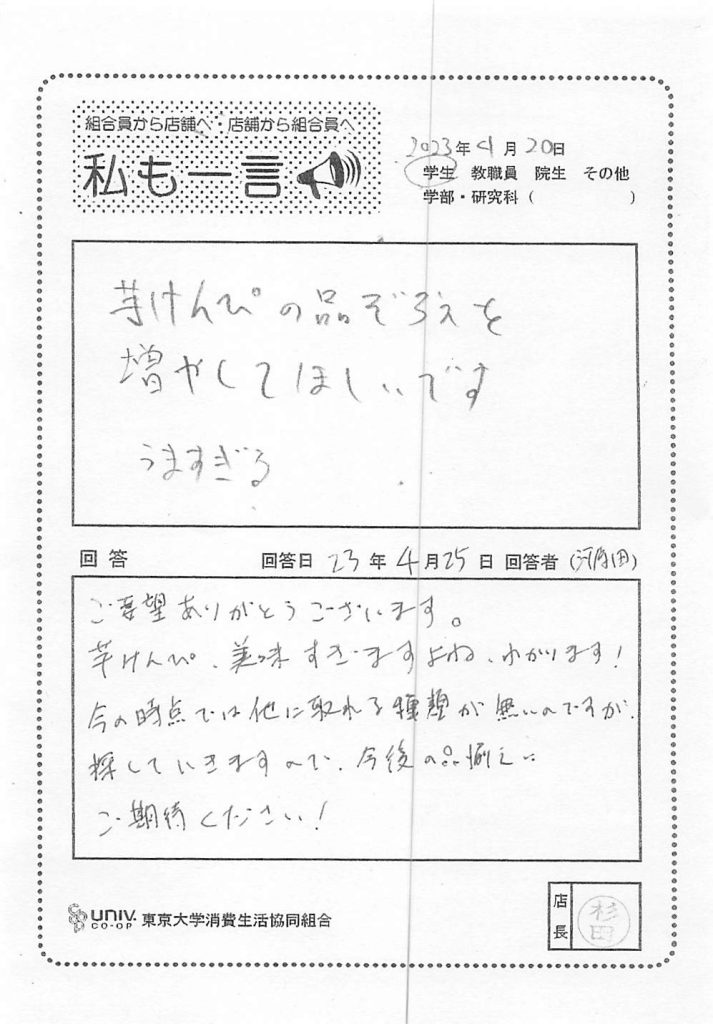 組合員から店舗へ・店舗から組合員へ
私も一言
2023年4月20日
学生 教職員 院生 その他
学部・研究科（ ）
芋けんぴの品ぞろえを
増やしてほしいです
うますぎる
回答 回答日 23年4月25日 回答者（河原田）
ご要望ありがとうございます。
芋けんぴ、美味すぎますよね、わかります！
今の時点では他に取れる種類が無いのですが、
探していきますので、今後の品揃えに
ご期待ください！
UNIV. CO-OP 東京大学消費生活協同組合
店長 杉田